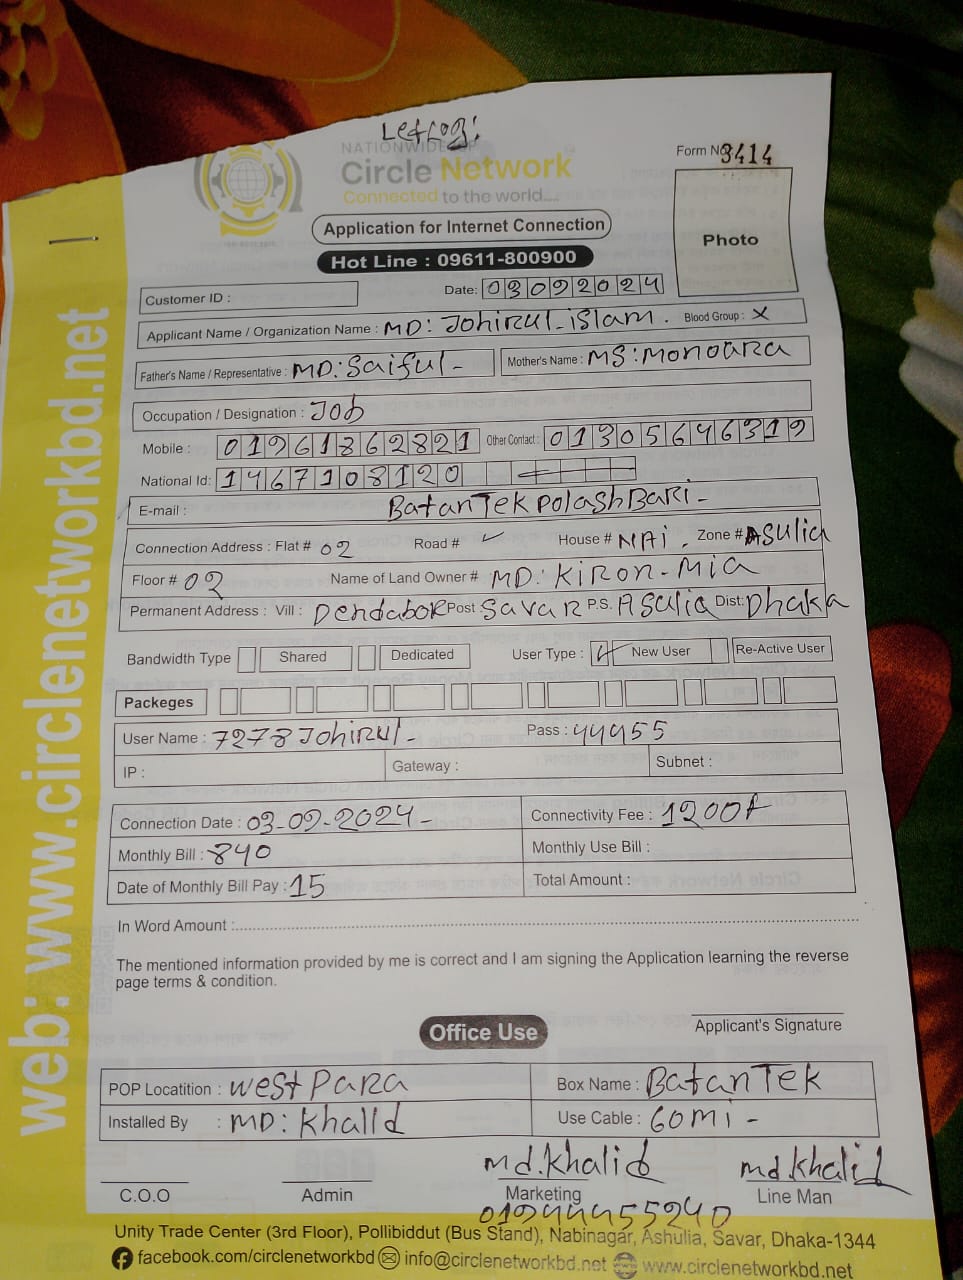 NATIONWIDE ISP
Circle Network
Connected to the world....
Form No 3414
Photo
Application for Internet Connection
Hot Line : 09611-800900
Customer ID :
Date: 03092024
Applicant Name / Organization Name : MD: Johirul-islam. Blood Group : X
Father's Name / Representative : MD: Saiful- Mother's Name : MS: Monoara
Occupation / Designation : Job
Mobile : 01961862821 Other Contact : 01305646319
National Id: 1467108120
E-mail : BatanTek PolashBari-
Connection Address : Flat # 02 Road # House # NAi. Zone # ASulia
Floor # 02 Name of Land Owner # MD: Kiron-Mia
Permanent Address : Vill : Dendabor Post : Savar P.S. ASulia Dist: Dhaka
Bandwidth Type Shared Dedicated User Type : New User Re-Active User
Packeges
User Name : 7278Johirul- Pass : 44455
IP : Gateway : Subnet :
Connection Date : 03-09-2024- Connectivity Fee : 1200/
Monthly Bill : 840 Monthly Use Bill :
Date of Monthly Bill Pay : 15 Total Amount :
In Word Amount :
The mentioned information provided by me is correct and I am signing the Application learning the reverse
page terms & condition.
Applicant's Signature
Office Use
POP Locatition : west Para Box Name : BatanTek
Installed By : MD: Khalid Use Cable : 60mi-
md.khalid md.khalid
C.O.O Admin Marketing Line Man
Unity Trade Center (3rd Floor), Pollibiddut (Bus Stand), Nabinagar, Ashulia, Savar, Dhaka-1344
facebook.com/circlenetworkbd info@circlenetworkbd.net www.circlenetworkbd.net
web: www.circlenetworkbd.net